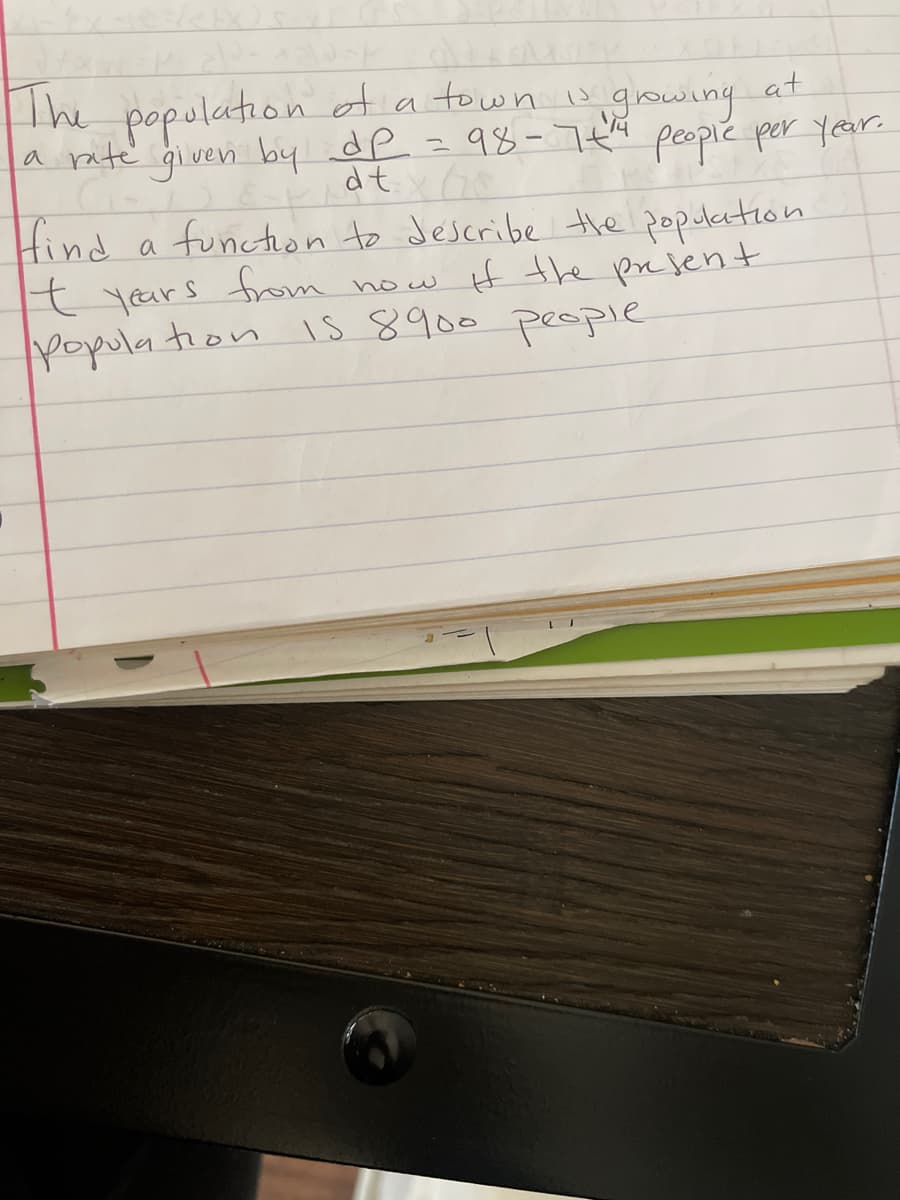 The population of a town is growing at
a rate given by dP/dt = 98 - 7t^1/4 people per year.
find a function to describe the population
t years from now if the present
population is 8900 people
= 1